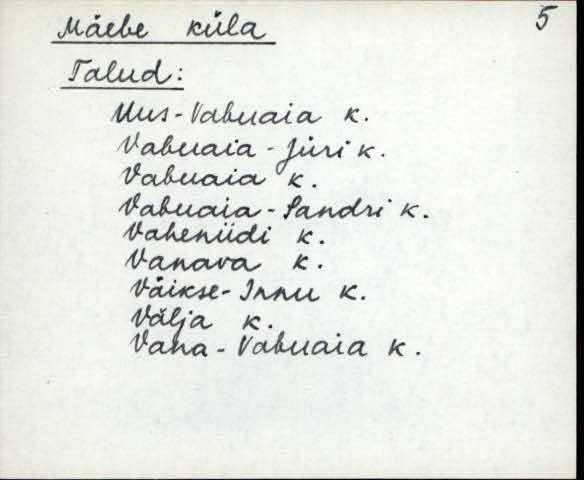 Mäebe küla 5
Talud:
Uus-Vabuaia k.
Vabuaia-Jüri k.
Vabuaia k.
Vabuaia-Sandri k.
Vaheniidi k.
Vanava k.
Väikse-Innu k.
Välja k.
Vana-Vabuaia k.